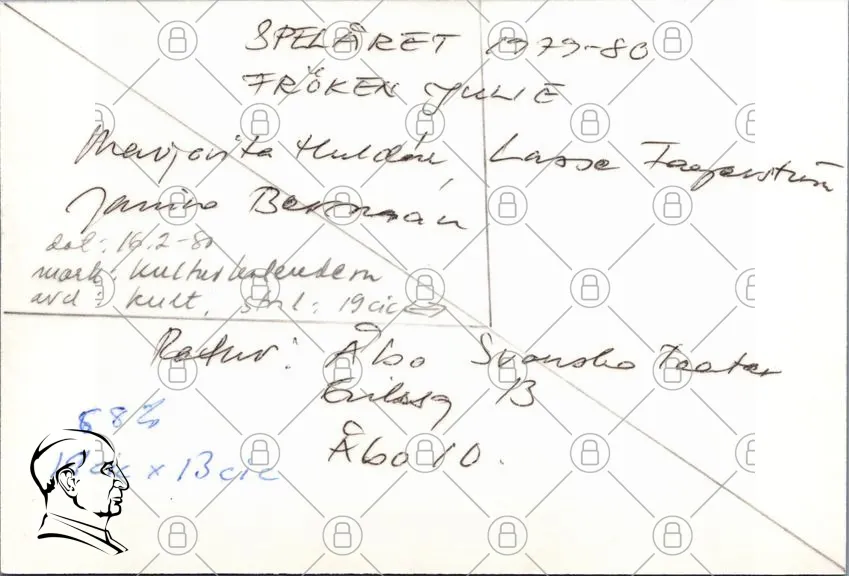 SPELÅRET 1979-80
FRÖKEN JULIE
Margarita Huldén, Lasse Fagerström
Janina Berman
dat: 16.2-80
mark: Kulturkalendern
avd: kult, strl: 19 cic
Retur: Åbo Svenska Teater
Eriksg 13
Åbo 10.
68%
19 cic x 13 cic